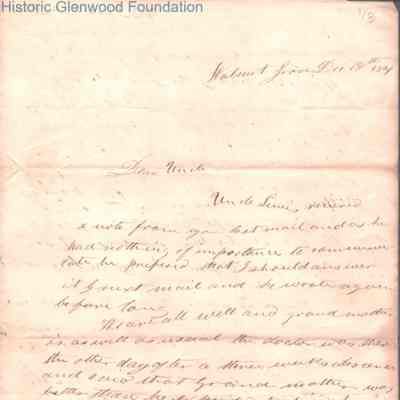 Historic Glenwood Foundation
Walnut Grove Dec 19th 184
Dear Uncle
Uncle Lewis received
a note from you last mail and as he
had nothing of importance to communi
cate he prefered that I should answer
it by next mail and he would again
before long
We are all well and grand mother
is as well as usual the doctor was here
the other day after a three weeks absence
and said that Grand mother was
better